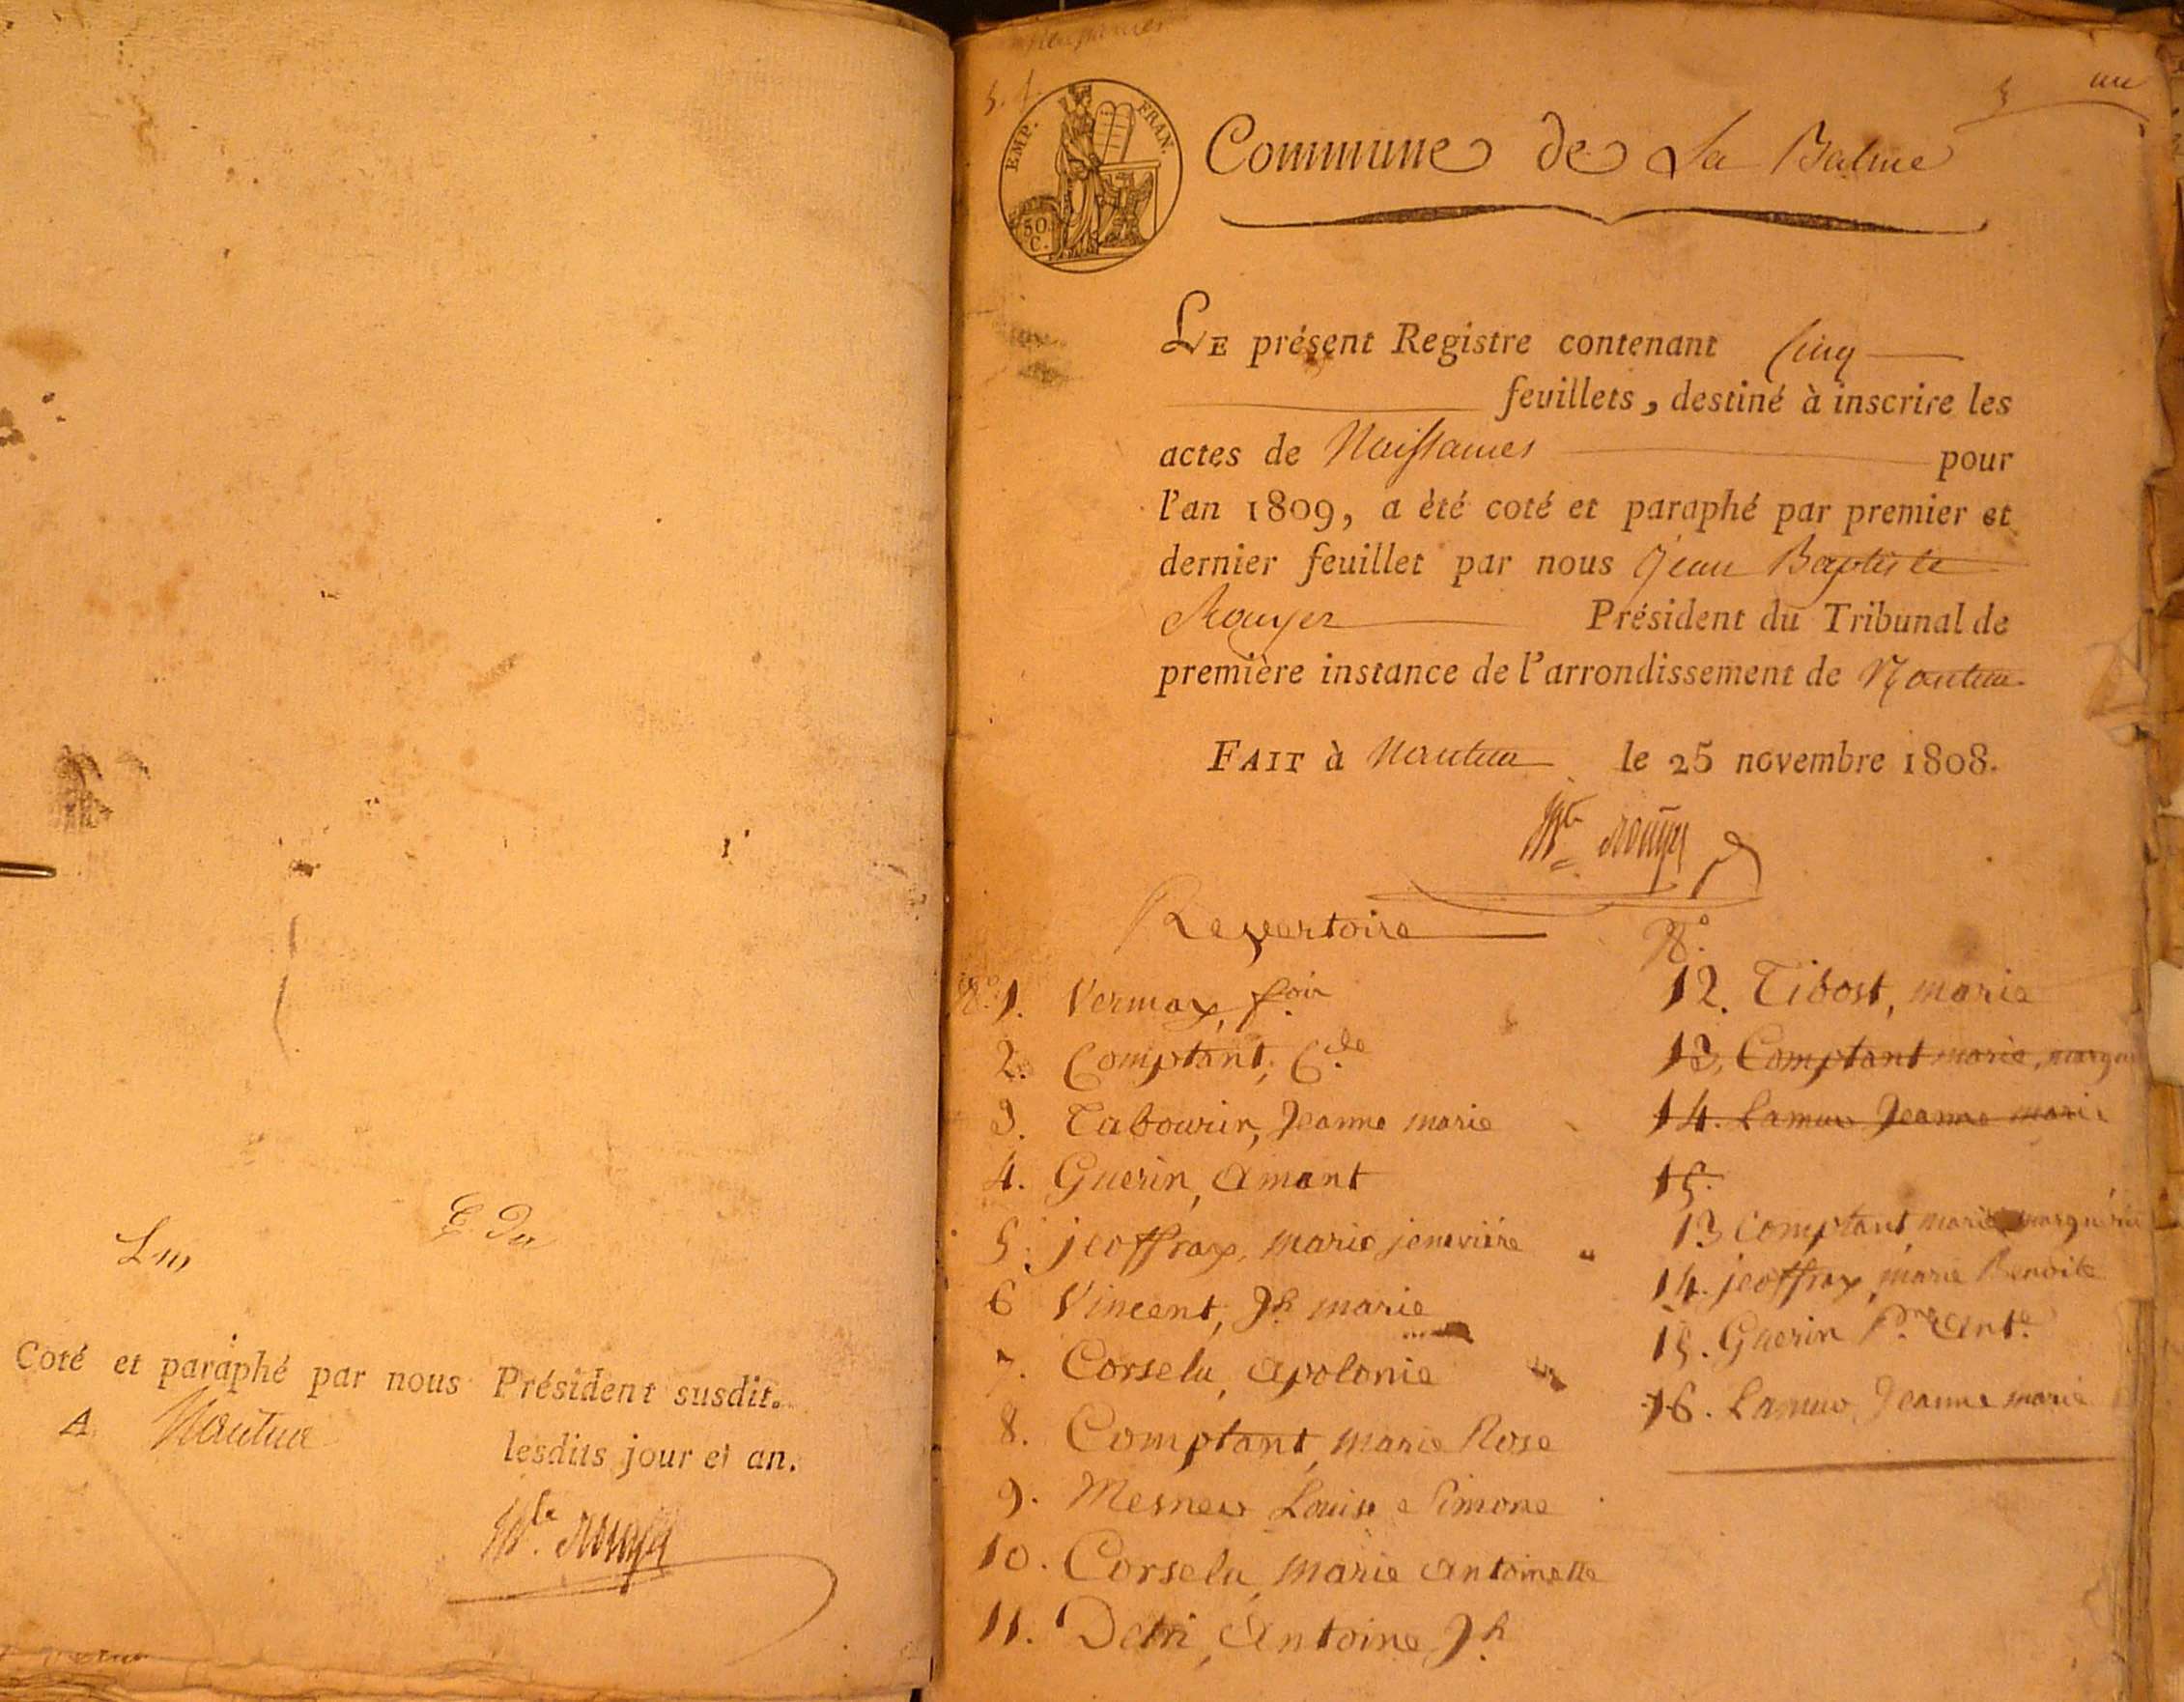 Coté et paraphé par nous Président susdit.
A Nantua lesdits jour et an.
un
EMP. FRAN.
50 C.
Commune de La Balme
LE présent Registre contenant Cinq
feuillets, destiné à inscrire les
actes de Naissances pour
l'an 1809, a èté coté et paraphé par premier et
dernier feuillet par nous Jean Baptiste
Rouyer Président du Tribunal de
première instance de l'arrondissement de Nantua
FAIT à Nantua le 25 novembre 1808.
Jh Bte Rouyer
Repertoire
N.° 1. Vermax, f.ois
2. Comptant, C.de
3. Tabourin, Jeanne marie
4. Guerin, Amant
5. jeoffrax, marie jenevière
6 Vincent, Jh marie
7. Corselu, Apolonie
8. Comptant, marie Rose
9. Mesneu Louise Simone
10. Corselu, marie Antoinette
11. Detri, Antoine Jh
N.°
12. Tibost, marie
13. Comptant marie, margue
14. Lamuv Jeanne marie
15.
13 Comptant, marie marguérite
14. jeoffrax, marie Benoite
15. Guerin P.re Ant.e
16. Lamuv, Jeanne marie